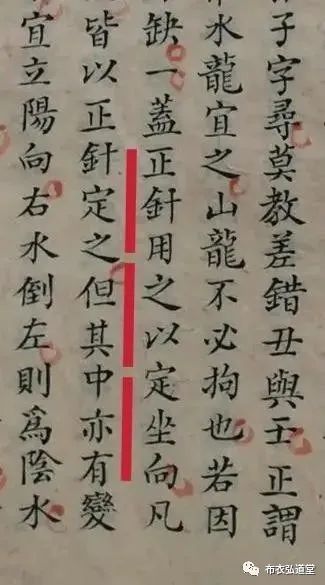 子字尋莫教差錯丑與壬正謂
水龍宜之山龍不必拘也若因
缺一蓋正針用之以定坐向凡
皆以正針定之但其中亦有變
宜立陽向右水倒左則爲陰水
布衣弘道堂